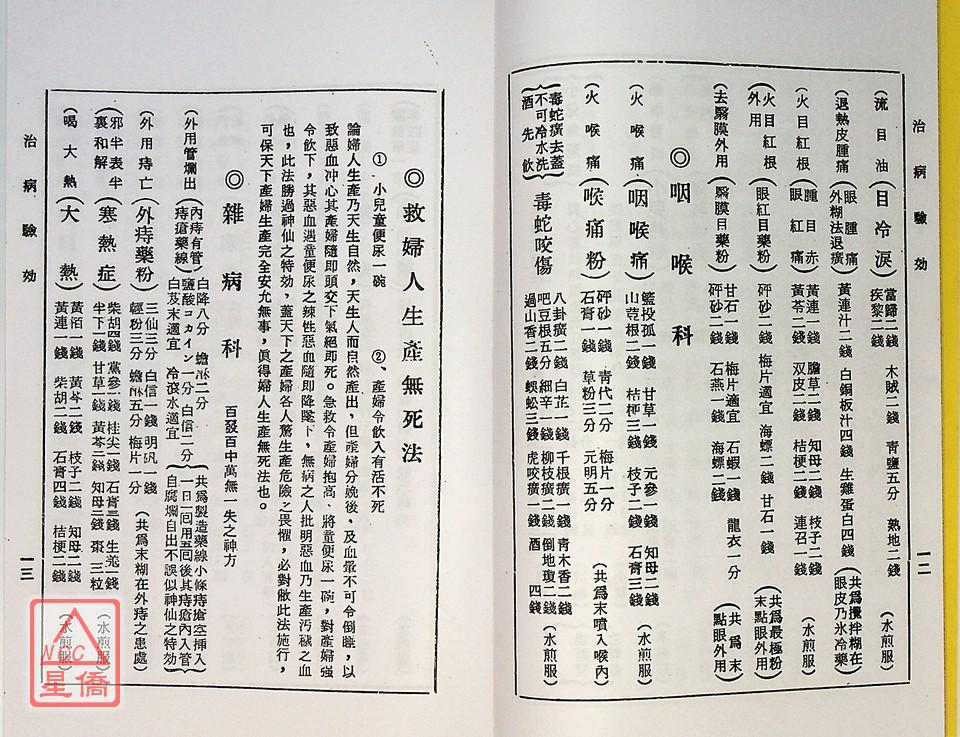 治病驗効
一二
(流目油)目冷淚 當歸二錢 木賊二錢 青鹽五分 熟地二錢 疾黎二錢 (水煎服)
(退熱皮腫痛)眼腫痛 外糊法退癀 黃連汁二錢 白銅板汁四錢 生雞蛋白四錢 (共爲攪拌糊在眼皮乃氷冷藥)
(火目紅根)腫目赤 眼紅痛 黃連二錢 膽草二錢 知母二錢 枝子二錢 黃芩二錢 双皮二錢 桔梗二錢 連召一錢 (水煎服)
(火目紅根外用)眼紅目藥粉 砰砂二錢 梅片適宜 海螵二錢 甘石一錢 (共爲最極粉末點眼外用)
(去翳膜外用)翳膜目藥粉 甘石一錢 梅片適宜 石蝦一錢 龍衣一分 砰砂二錢 石燕一錢 海螵二錢 (共爲末點眼外用)
◎咽喉科
(火喉痛)咽喉痛 籃投孤一錢 甘草一錢 元參一錢 知母二錢 山荳根二錢 桔梗三錢 枝子二錢 石膏三錢 (水煎服)
(火喉痛)喉痛粉 砰砂一錢 青代二分 梅片一分 石膏一錢 草粉三分 元明五分 (共爲末噴入喉內)
毒蛇癀去蓋不可冷水洗酒先飲 毒蛇咬傷 八卦癀二錢 白芷一錢 千根癀一錢 青木香二錢 山香二錢 柳枝癀二錢 倒地瓊二錢 吧豆根五分 細辛一錢 蜈蚣三 虎咬癀一錢 酒四錢 (水煎服)
◎救婦人生產無死法
① 小兒童便尿一碗 ②、產婦令飲人有活不死
論婦人生產乃天生自然,天生人而自然產出,但產婦分娩後,及血暈不可令倒睡,以
致惡血冲心其產婦隨即頭交下氣絕即死。急救令產婦抱高、將童便尿一碗,對產婦強
令飲下,其惡血遇童便尿之辣性惡血隨即降墜下,無病之人批明惡血乃生產汚穢之血
也,此法勝過神仙之特効,蓋天下之產婦各人驚生產危險之畏懼,必對敝此法施行,
可保天下產婦生產完全安允無事,眞得婦人生產無死法也。
◎雜病科 百發百中萬無一失之神方
(外用管爛出)內痔有管 痔瘡藥線 白降八分 蟾酥二分 鹽酸コカイン一分 白信二分 白芨末適宜 冷滾水適宜 共爲製造藥線小條痔瘡空揷入一日一回用五回後其痔瘡內入管自腐爛自出不誤似神仙之特効
(外用痔亡)外痔藥粉 三仙三分 白信一錢 明矾一錢 輕粉三分 蟾酥五分 梅片一分 (共爲末糊在外痔之患處)
(邪半表半裏和解)寒熱症 柴胡四錢 黨參二錢 桂尖一錢 石膏三錢 生羌二錢 半下一錢 甘草一錢 黃芩二錢 知母三錢 棗三粒 (水煎服)
(喝大熱)大熱 黃栢一錢 黃芩二錢 枝子二錢 知母二錢 黃連一錢 柴胡二錢 石膏四錢 桔梗二錢 (水煎服)
治病驗効
一三
NCC
星僑